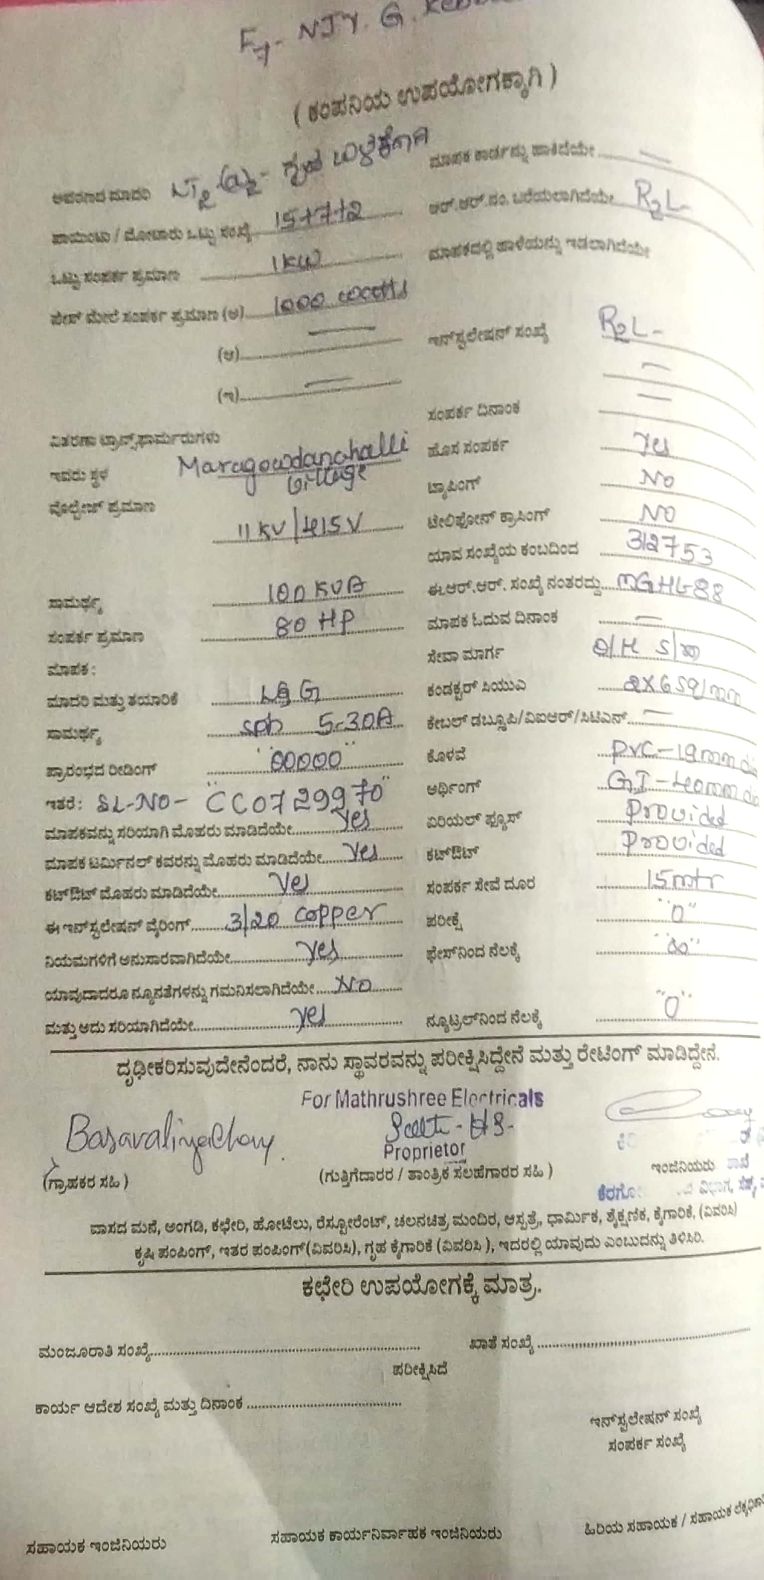 F7- NJY. G.
( ಕಂಪನಿಯ ಉಪಯೋಗಕ್ಕಾಗಿ )
ಆವರಣದ ಮಾದರಿ LT2 ಗೃಹ ಬಳಕೆಗಾಗಿ ಮಾಪಕ ಕಾರ್ಡನ್ನು ಹಾಕಿದೆಯೇ —
ಪಾಯಿಂಟು / ಮೋಟಾರು ಒಟ್ಟು ಸಂಖ್ಯೆ 15+7+2 ಆರ್.ಆರ್.ನಂ. ಬರೆಯಲಾಗಿದೆಯೇ R2L-
ಒಟ್ಟು ಸಂಪರ್ಕ ಪ್ರಮಾಣ 1KW ಮಾಪಕದಲ್ಲಿ ಹಾಳೆಯನ್ನು ಇಡಲಾಗಿದೆಯೇ
ಫೇಸ್ ಮೇಲೆ ಸಂಪರ್ಕ ಪ್ರಮಾಣ (ಅ) 1000 watts
(ಆ) — ಇನ್‌ಸ್ಟಲೇಷನ್ ಸಂಖ್ಯೆ R2L-
(ಇ) — —
ಸಂಪರ್ಕ ದಿನಾಂಕ —
ವಿತರಣಾ ಟ್ರಾನ್ಸ್‌ಫಾರ್ಮರುಗಳು
ಇವರು ಸ್ಥಳ Maragowdanahalli village ಹೊಸ ಸಂಪರ್ಕ Yes
ವೋಲ್ಟೇಜ್ ಪ್ರಮಾಣ ಟ್ಯಾಪಿಂಗ್ NO
11 KV/415V ಟೆಲಿಫೋನ್ ಕ್ರಾಸಿಂಗ್ NO
ಯಾವ ಸಂಖ್ಯೆಯ ಕಂಬದಿಂದ 312753
ಸಾಮರ್ಥ್ಯ 100 KVA ಈ.ಆರ್.ಆರ್. ಸಂಖ್ಯೆ ನಂತರದ್ದು MGHL88
ಸಂಪರ್ಕ ಪ್ರಮಾಣ 80 HP ಮಾಪಕ ಓದುವ ದಿನಾಂಕ —
ಮಾಪಕ : ಸೇವಾ ಮಾರ್ಗ O/H S/m
ಮಾದರಿ ಮತ್ತು ತಯಾರಿಕೆ L&G ಕಂಡಕ್ಟರ್ ಸಿಯುಎ 2X6 sq/mm
ಸಾಮರ್ಥ್ಯ sph 5-30A ಕೇಬಲ್ ಡಬ್ಲೂಪಿ/ವಿಐಆರ್/ಸಿಟಿಎನ್ —
ಪ್ರಾರಂಭದ ರೀಡಿಂಗ್ "00000" ಕೊಳವೆ PVC-19mm
ಇತರೆ : SL-NO- "CC0729970" ಅರ್ಥಿಂಗ್ GI-40mm
ಮಾಪಕವನ್ನು ಸರಿಯಾಗಿ ಮೊಹರು ಮಾಡಿದೆಯೇ Yes ಏರಿಯಲ್ ಫ್ಯೂಸ್ Provided
ಮಾಪಕ ಟರ್ಮಿನಲ್ ಕವರನ್ನು ಮೊಹರು ಮಾಡಿದೆಯೇ Yes ಕಟ್‌ಔಟ್ Provided
ಕಟ್‌ಔಟ್ ಮೊಹರು ಮಾಡಿದೆಯೇ Yes ಸಂಪರ್ಕ ಸೇವೆ ದೂರ 15mtr
ಈ ಇನ್‌ಸ್ಟಲೇಷನ್ ವೈರಿಂಗ್ 3/20 copper ಪರೀಕ್ಷೆ "0"
ನಿಯಮಗಳಿಗೆ ಅನುಸಾರವಾಗಿದೆಯೇ Yes ಫೇಸ್‌ನಿಂದ ನೆಲಕ್ಕೆ "∞"
ಯಾವುದಾದರೂ ನ್ಯೂನತೆಗಳನ್ನು ಗಮನಿಸಲಾಗಿದೆಯೇ NO
ಮತ್ತು ಅದು ಸರಿಯಾಗಿದೆಯೇ Yes ನ್ಯೂಟ್ರಲ್‌ನಿಂದ ನೆಲಕ್ಕೆ "0"
ದೃಢೀಕರಿಸುವುದೇನೆಂದರೆ, ನಾನು ಸ್ಥಾವರವನ್ನು ಪರೀಕ್ಷಿಸಿದ್ದೇನೆ ಮತ್ತು ರೇಟಿಂಗ್ ಮಾಡಿದ್ದೇನೆ.
For Mathrushree Electricals
Proprietor
(ಗ್ರಾಹಕರ ಸಹಿ ) (ಗುತ್ತಿಗೆದಾರರ / ತಾಂತ್ರಿಕ ಸಲಹೆಗಾರರ ಸಹಿ ) ಇಂಜಿನಿಯರು
ವಾಸದ ಮನೆ, ಅಂಗಡಿ, ಕಛೇರಿ, ಹೋಟೆಲು, ರೆಸ್ಟೋರೆಂಟ್, ಚಲನಚಿತ್ರ ಮಂದಿರ, ಆಸ್ಪತ್ರೆ, ಧಾರ್ಮಿಕ, ಶೈಕ್ಷಣಿಕ, ಕೈಗಾರಿಕೆ, (ವಿವರಿಸಿ)
ಕೃಷಿ ಪಂಪಿಂಗ್, ಇತರ ಪಂಪಿಂಗ್(ವಿವರಿಸಿ), ಗೃಹ ಕೈಗಾರಿಕೆ (ವಿವರಿಸಿ ), ಇದರಲ್ಲಿ ಯಾವುದು ಎಂಬುದನ್ನು ತಿಳಿಸಿರಿ.
ಕಛೇರಿ ಉಪಯೋಗಕ್ಕೆ ಮಾತ್ರ.
ಮಂಜೂರಾತಿ ಸಂಖ್ಯೆ ಖಾತೆ ಸಂಖ್ಯೆ
ಪರೀಕ್ಷಿಸಿದೆ
ಕಾರ್ಯ ಆದೇಶ ಸಂಖ್ಯೆ ಮತ್ತು ದಿನಾಂಕ
ಇನ್‌ಸ್ಟಲೇಷನ್ ಸಂಖ್ಯೆ
ಸಂಪರ್ಕ ಸಂಖ್ಯೆ
ಸಹಾಯಕ ಇಂಜಿನಿಯರು ಸಹಾಯಕ ಕಾರ್ಯನಿರ್ವಾಹಕ ಇಂಜಿನಿಯರು ಹಿರಿಯ ಸಹಾಯಕ / ಸಹಾಯಕ